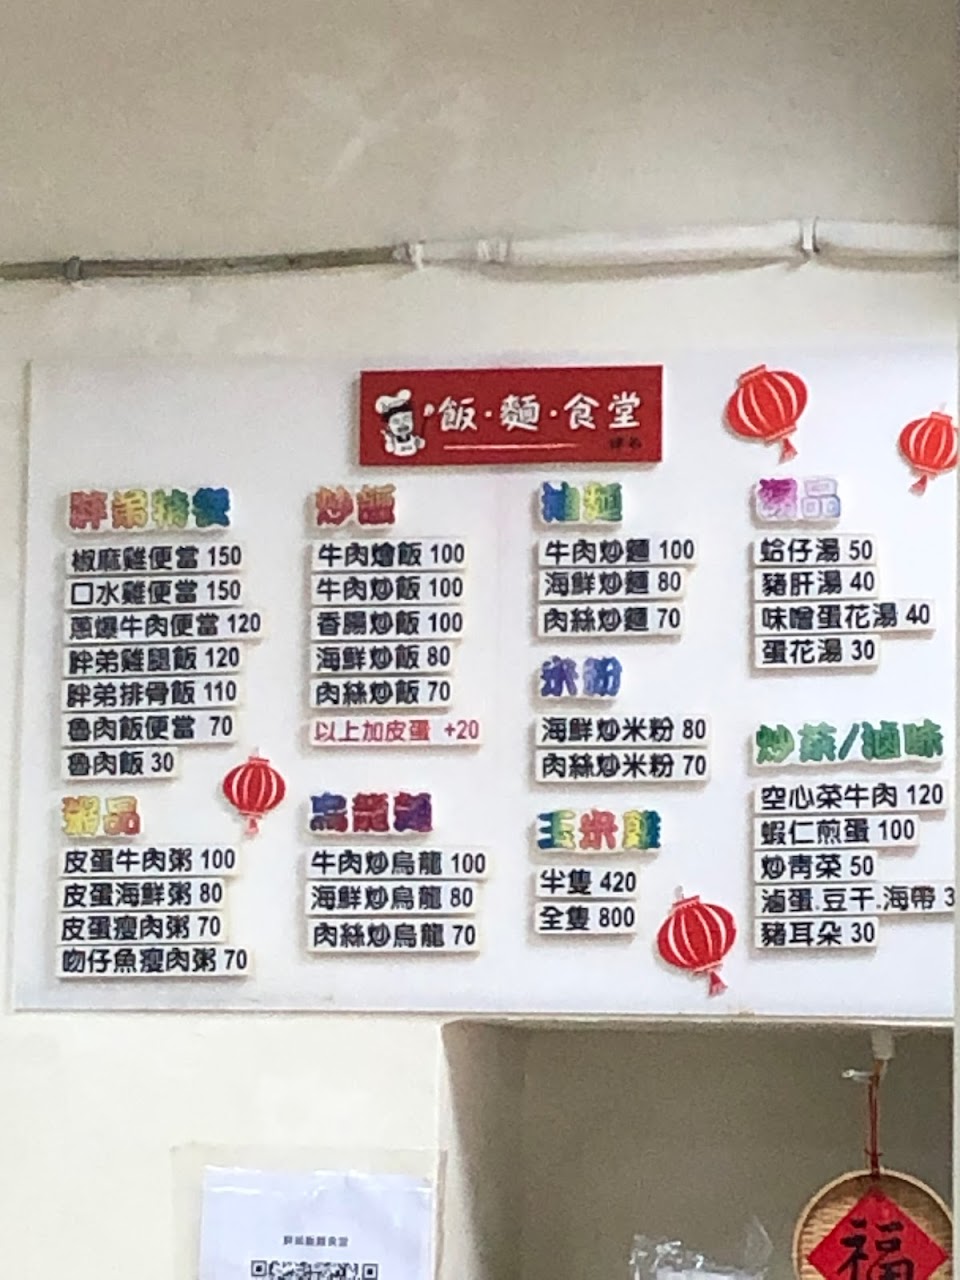 飯·麵·食堂
胖弟特餐
椒麻雞便當 150
口水雞便當 150
蔥爆牛肉便當 120
胖弟雞腿飯 120
胖弟排骨飯 110
魯肉飯便當 70
魯肉飯 30
粥品
皮蛋牛肉粥 100
皮蛋海鮮粥 80
皮蛋瘦肉粥 70
吻仔魚瘦肉粥 70
炒飯
牛肉燴飯 100
牛肉炒飯 100
香腸炒飯 100
海鮮炒飯 80
肉絲炒飯 70
以上加皮蛋 +20
烏龍麵
牛肉炒烏龍 100
海鮮炒烏龍 80
肉絲炒烏龍 70
油麵
牛肉炒麵 100
海鮮炒麵 80
肉絲炒麵 70
米粉
海鮮炒米粉 80
肉絲炒米粉 70
玉米雞
半隻 420
全隻 800
湯品
蛤仔湯 50
豬肝湯 40
味噌蛋花湯 40
蛋花湯 30
炒菜/滷味
空心菜牛肉 120
蝦仁煎蛋 100
炒青菜 50
滷蛋.豆干.海帶 3
豬耳朵 30
胖弟飯麵食堂
福